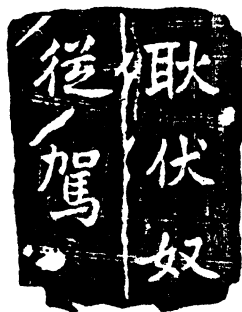 耿伏奴
從駕